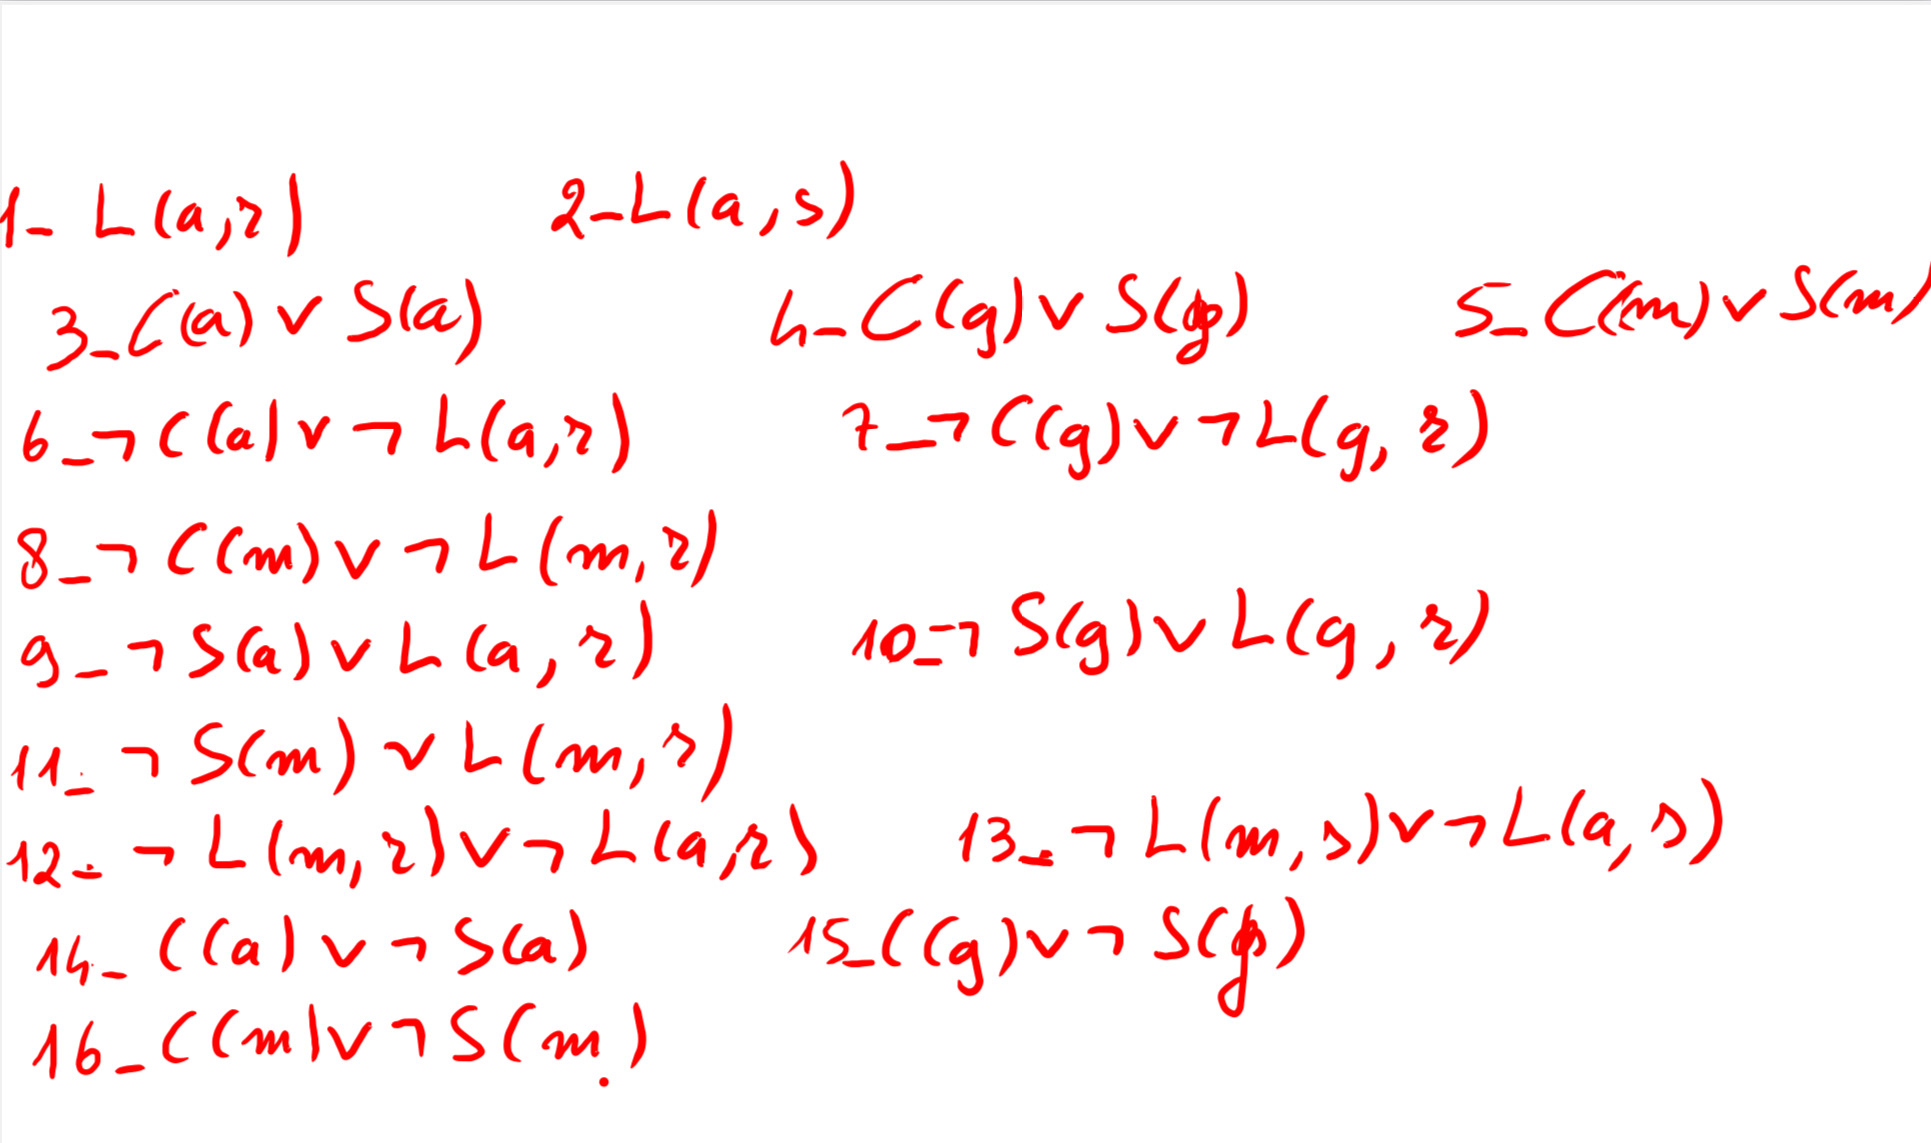 1- L(a,r) 2-L(a,s)
3-C(a) ∨ S(a) 4-C(g) ∨ S(g) 5-C(m) ∨ S(m)
6-¬C(a) ∨ ¬L(a,r) 7-¬C(g) ∨ ¬L(g, r)
8-¬C(m) ∨ ¬L(m,r)
9-¬S(a) ∨ L(a, r) 10-¬S(g) ∨ L(g, r)
11-¬S(m) ∨ L(m,r)
12-¬L(m,r) ∨ ¬L(a,r) 13-¬L(m,s) ∨ ¬L(a,s)
14-C(a) ∨ ¬S(a) 15-C(g) ∨ ¬S(g)
16-C(m) ∨ ¬S(m)